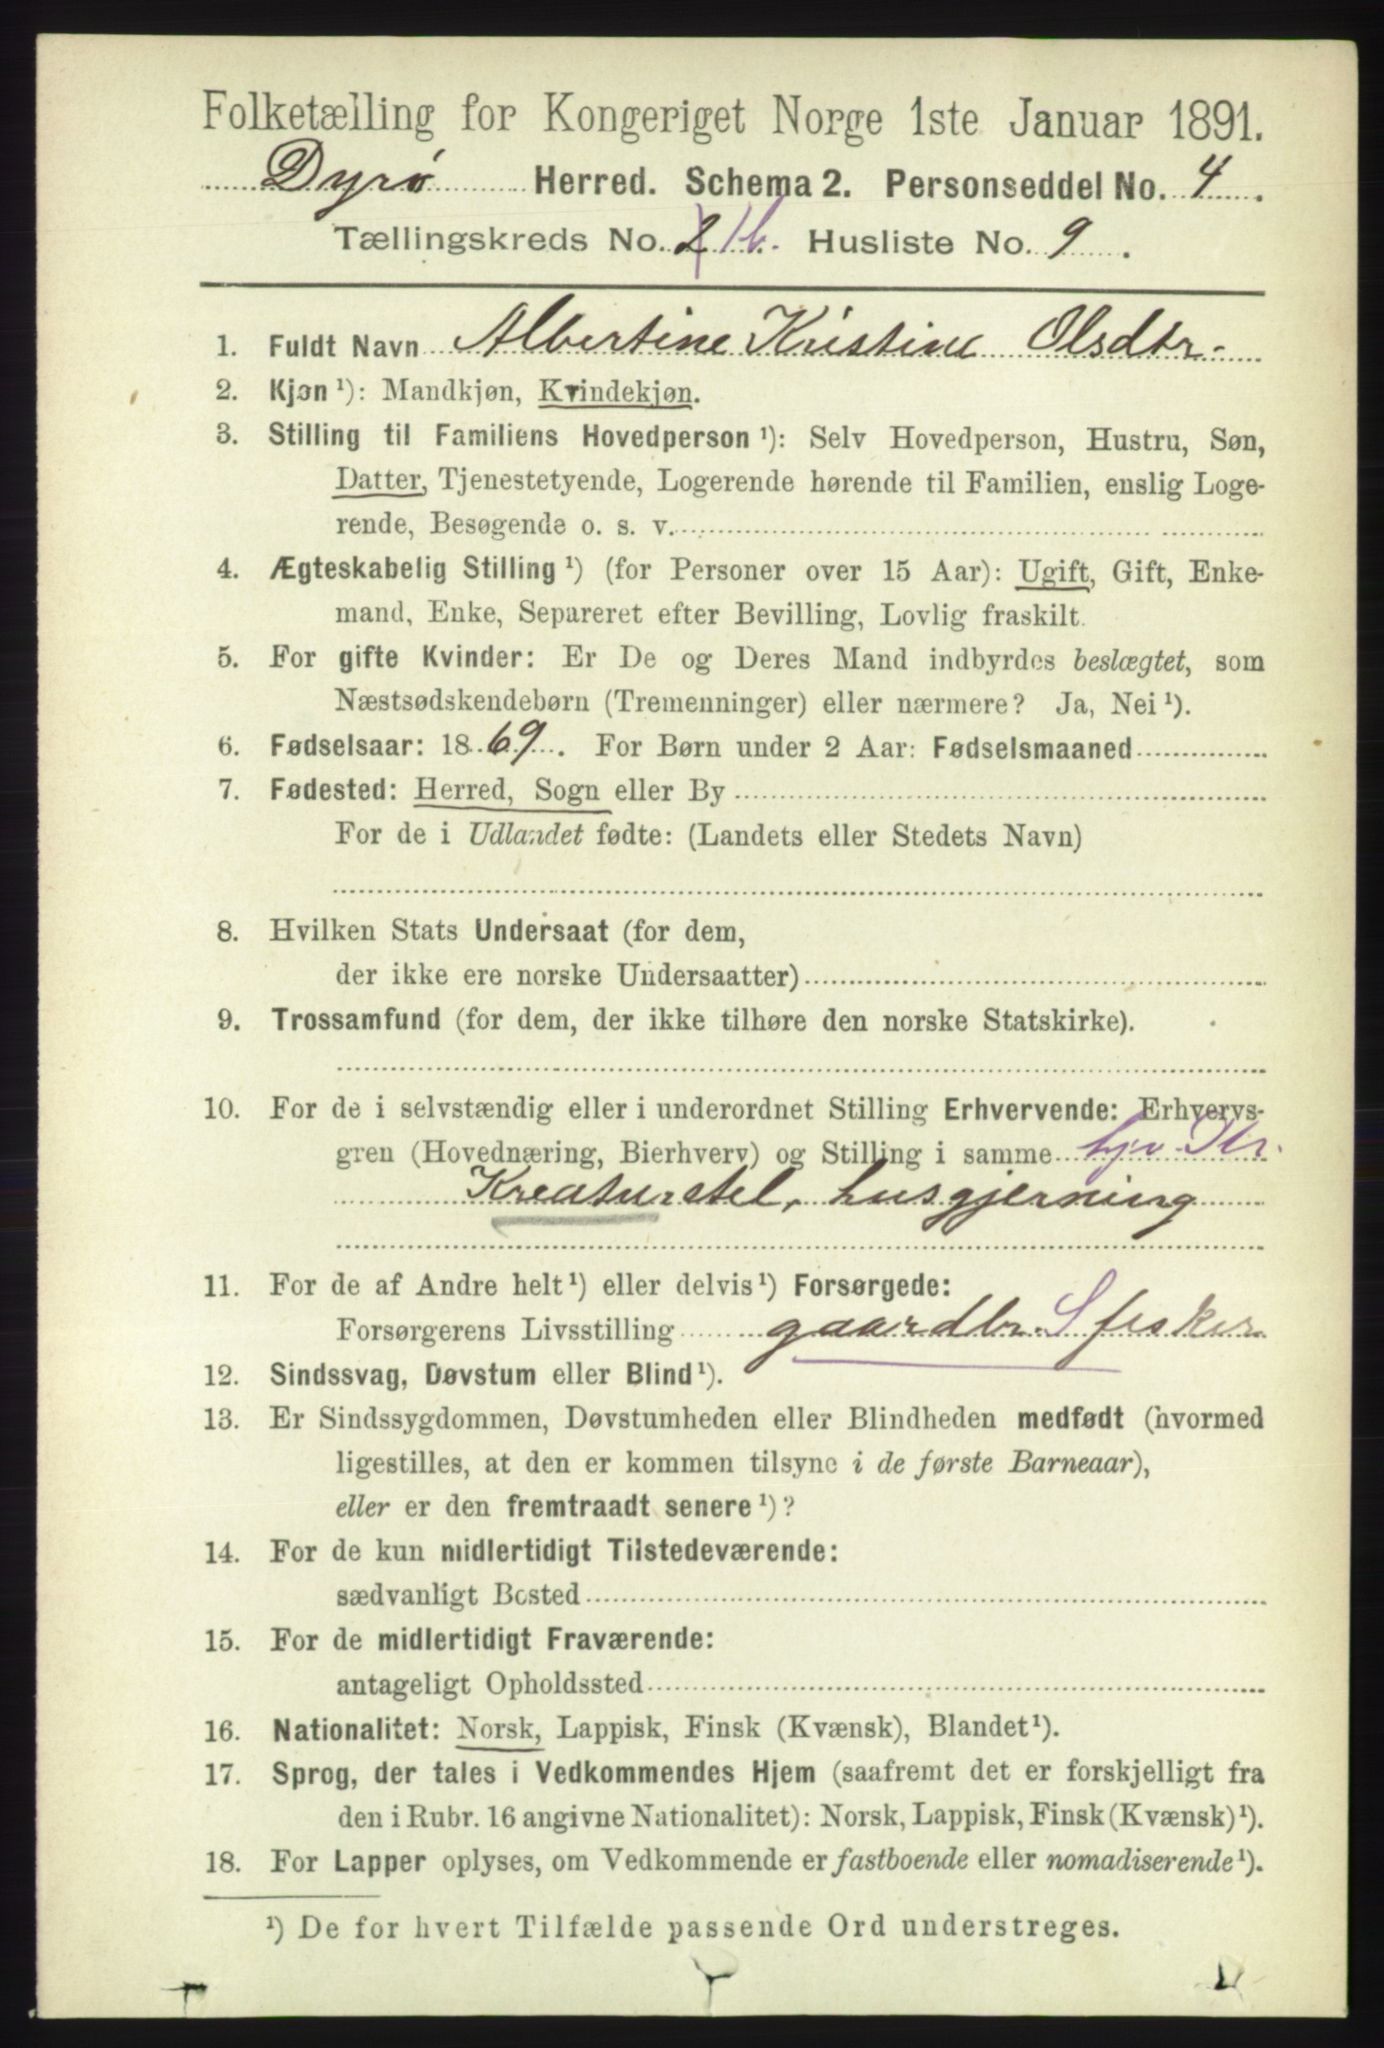 Folketælling for Kongeriget Norge 1ste Januar 1891.
Dyrø Herred. Schema 2. Personseddel No. 4.
Tællingskreds No. 2 1b. Husliste No. 9.
1. Fuldt Navn Albertine Kristine Olsdtr.
2. Kjøn ¹): Mandkjøn, Kvindekjøn.
3. Stilling til Familiens Hovedperson ¹): Selv Hovedperson, Hustru, Søn,
Datter, Tjenestetyende, Logerende hørende til Familien, enslig Loge-
rende, Besøgende o. s. v.
4. Ægteskabelig Stilling ¹) (for Personer over 15 Aar): Ugift, Gift, Enke-
mand, Enke, Separeret efter Bevilling, Lovlig fraskilt.
5. For gifte Kvinder: Er De og Deres Mand indbyrdes beslægtet, som
Næstsødskendebørn (Tremenninger) eller nærmere? Ja, Nei ¹).
6. Fødselsaar: 1869. For Børn under 2 Aar: Fødselsmaaned
7. Fødested: Herred, Sogn eller By
For de i Udlandet fødte: (Landets eller Stedets Navn)
8. Hvilken Stats Undersaat (for dem,
der ikke ere norske Undersaatter)
9. Trossamfund (for dem, der ikke tilhøre den norske Statskirke).
10. For de i selvstændig eller i underordnet Stilling Erhvervende: Erhvervs-
gren (Hovednæring, Bierhverv) og Stilling i samme
Kreaturstel, husgjerning
11. For de af Andre helt ¹) eller delvis ¹) Forsørgede:
Forsørgerens Livsstilling gaardbr. S fisker
12. Sindssvag, Døvstum eller Blind ¹).
13. Er Sindssygdommen, Døvstumheden eller Blindheden medfødt (hvormed
ligestilles, at den er kommen tilsyne i de første Barneaar),
eller er den fremtraadt senere ¹)?
14. For de kun midlertidigt Tilstedeværende:
sædvanligt Bosted
15. For de midlertidigt Fraværende:
antageligt Opholdssted
16. Nationalitet: Norsk, Lappisk, Finsk (Kvænsk), Blandet ¹).
17. Sprog, der tales i Vedkommendes Hjem (saafremt det er forskjelligt fra
den i Rubr. 16 angivne Nationalitet): Norsk, Lappisk, Finsk (Kvænsk) ¹).
18. For Lapper oplyses, om Vedkommende er fastboende eller nomadiserende ¹).
¹) De for hvert Tilfælde passende Ord understreges.